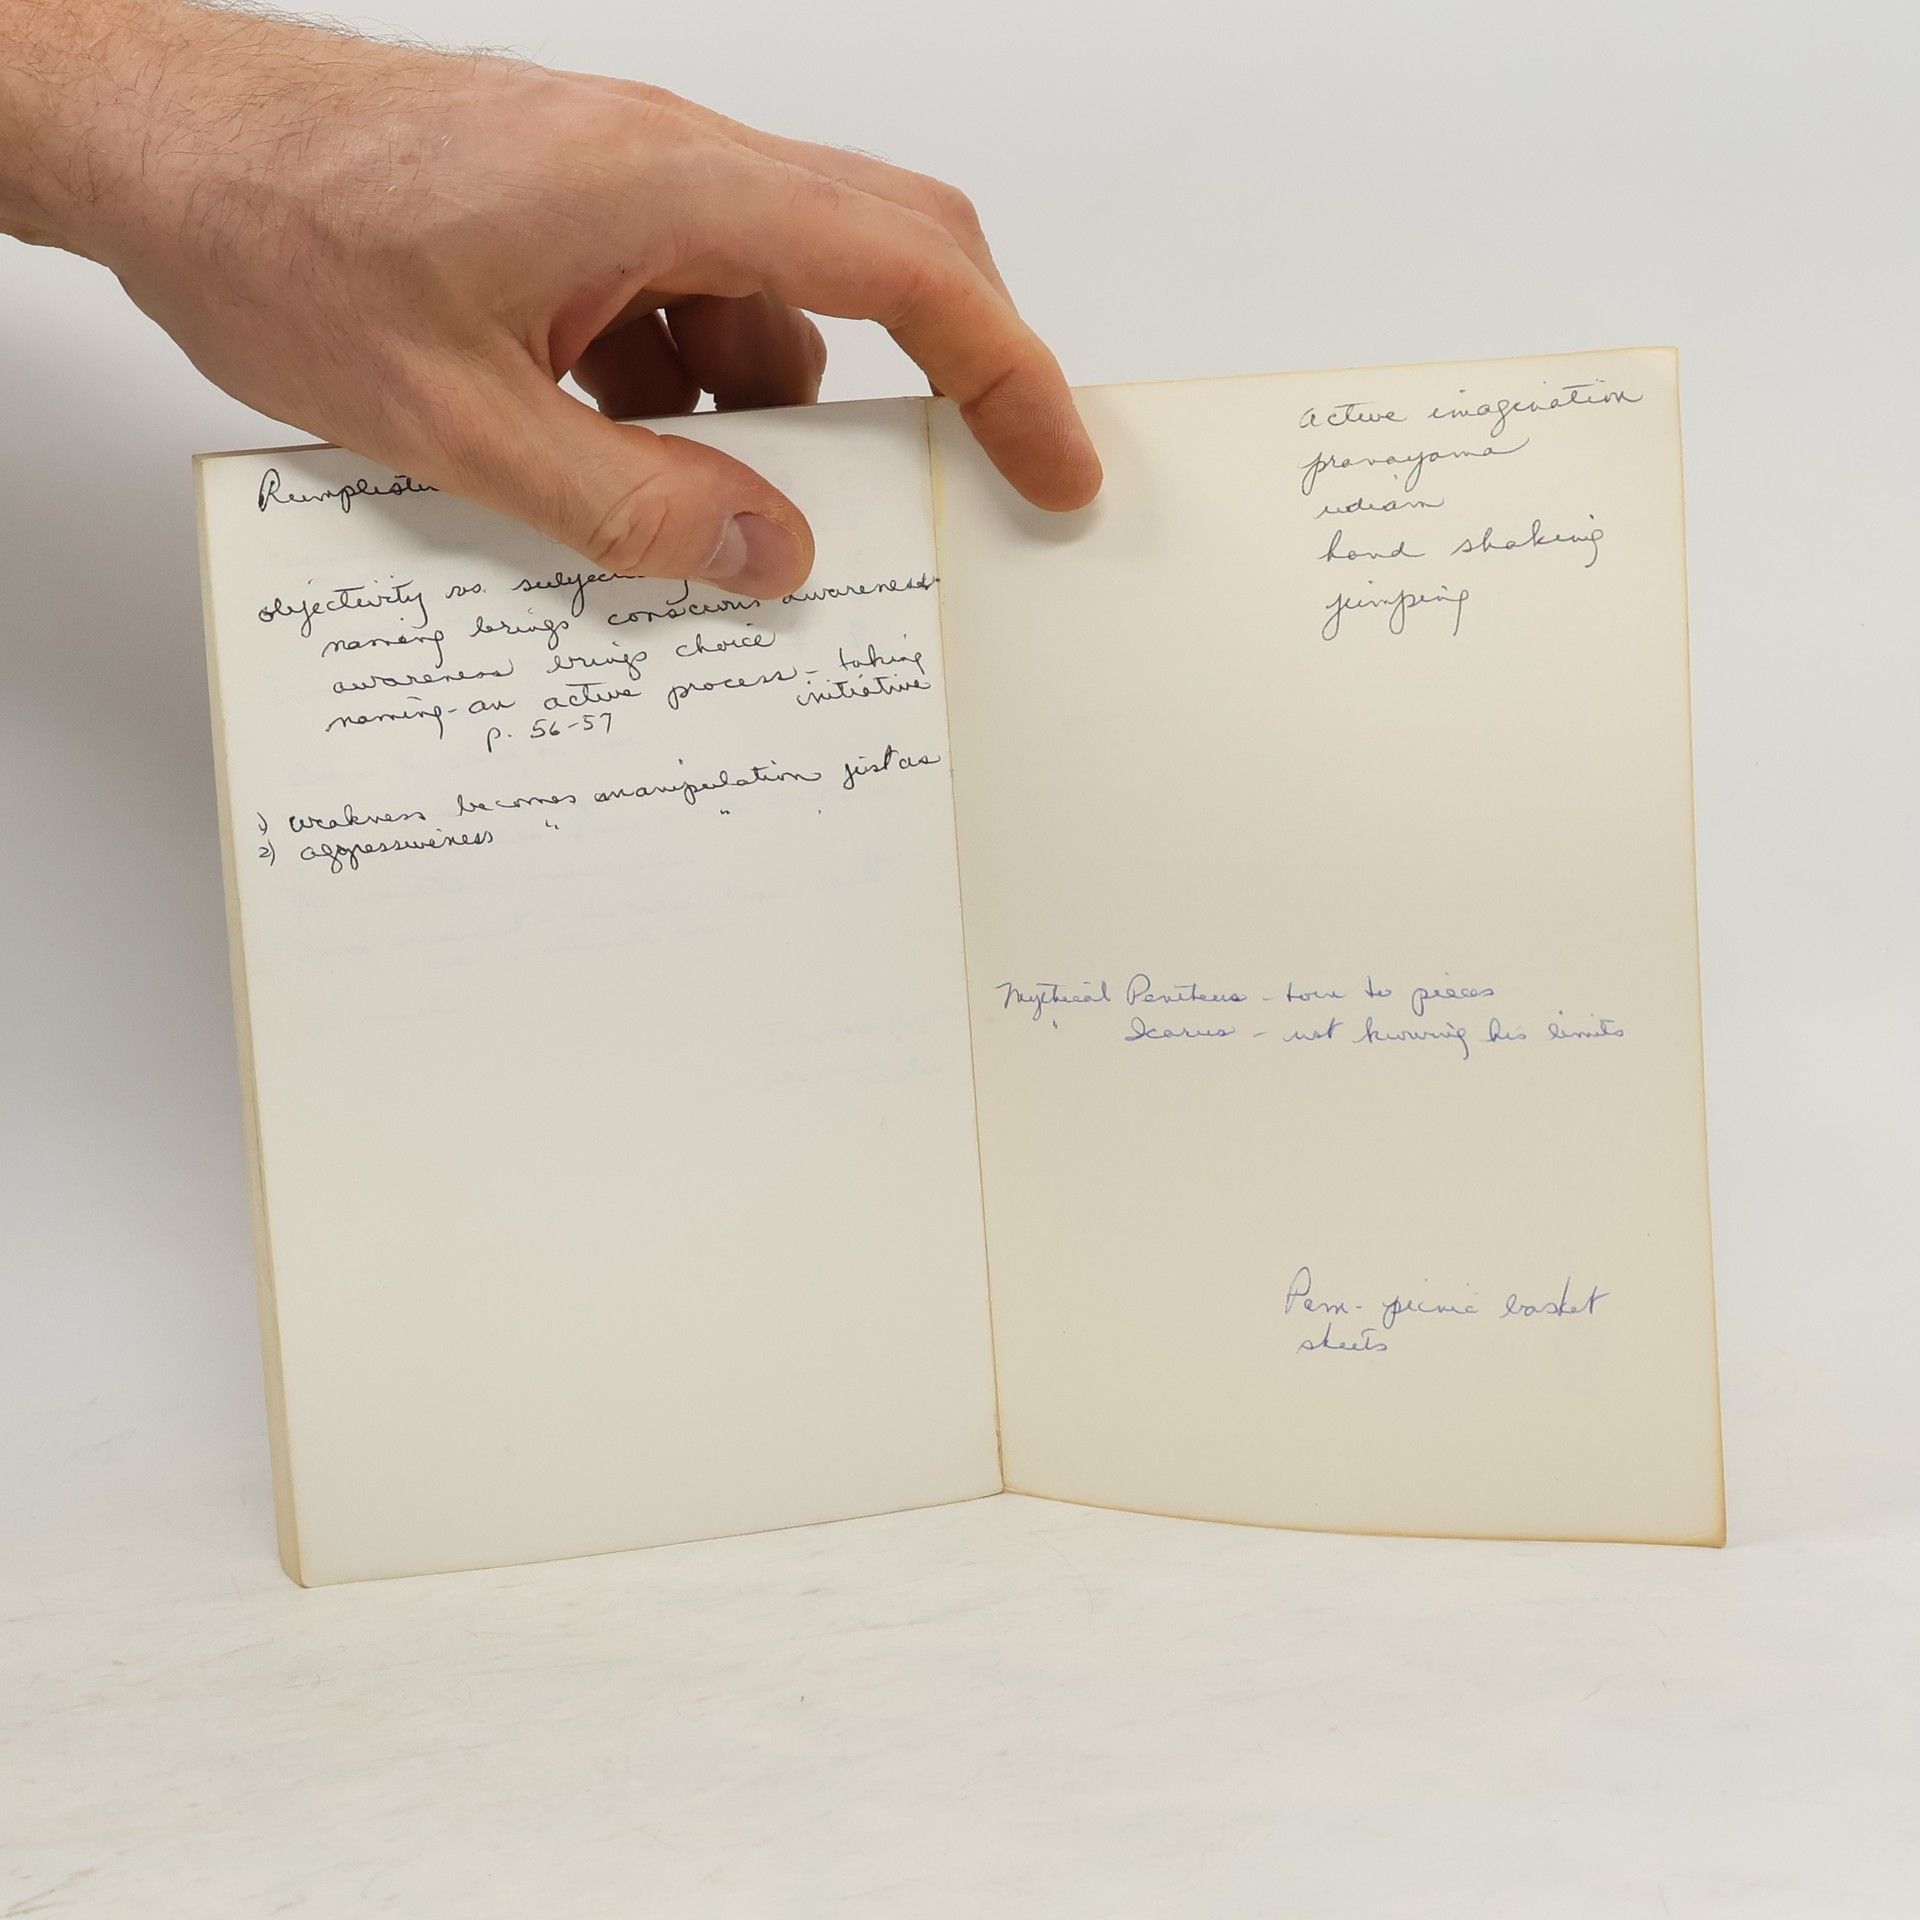 Rumplestil
objectivity vs. subjec
naming brings conscious awareness
awareness brings choice
naming - an active process - taking
initiative
p. 56-57
1) weakness becomes manipulation just as
2) aggressiveness " " .
active imagination
pranayama
hand shaking
jumping
Mythical Pentheus - torn to pieces
" Icarus - not knowing his limits
Pam - picnic basket
sheets